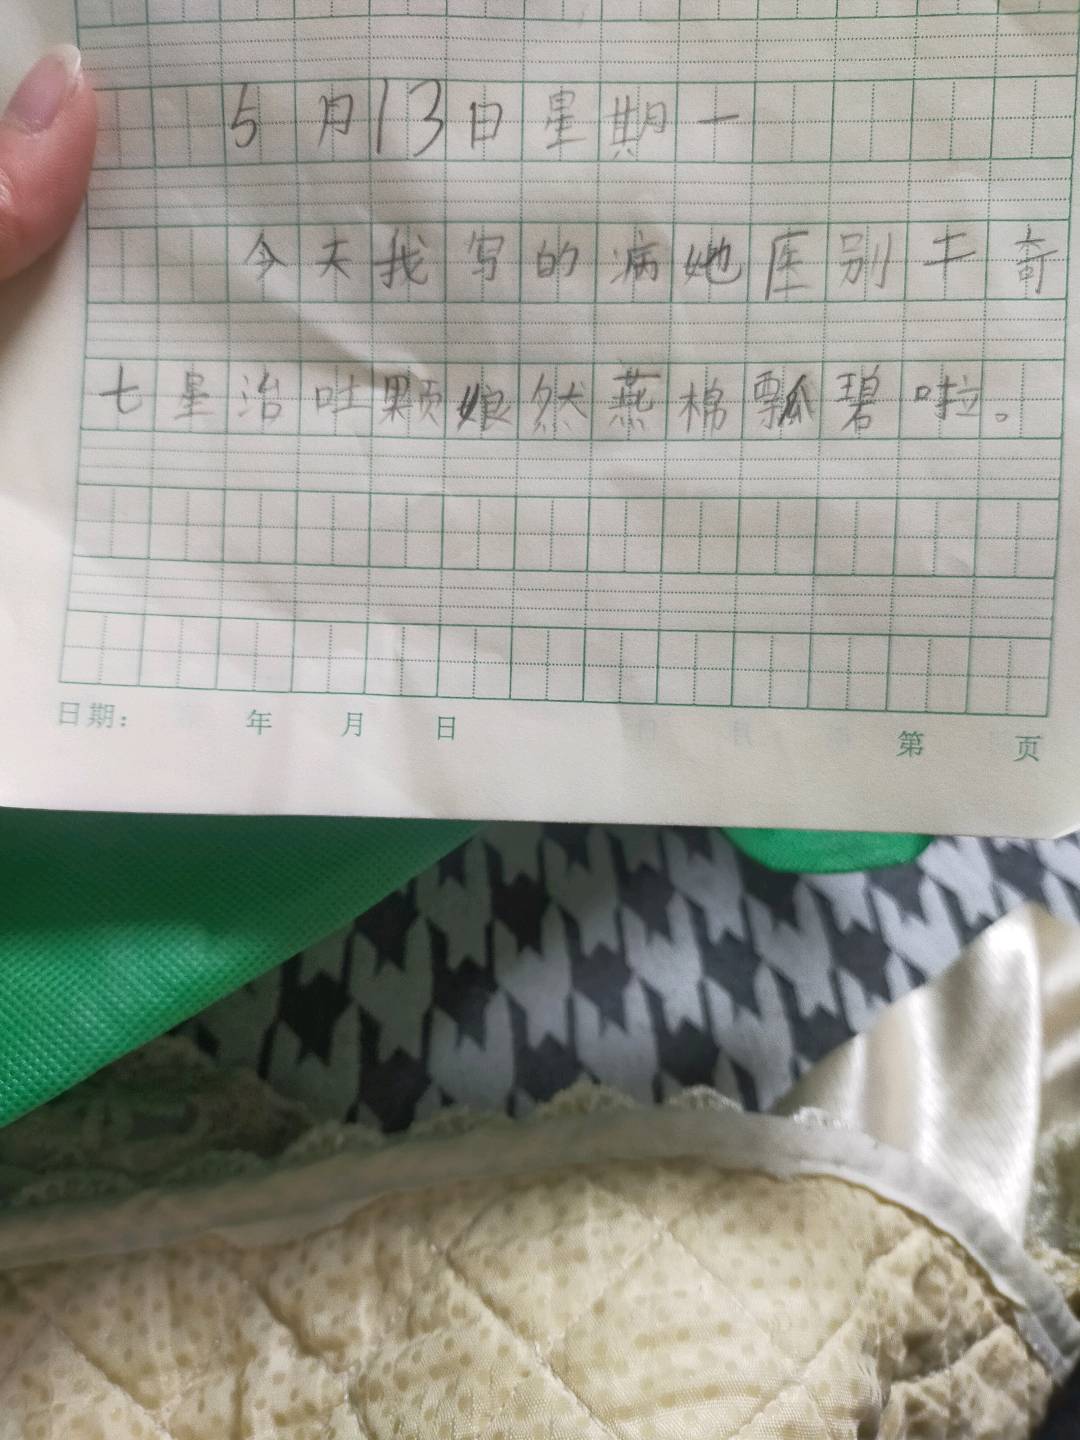 5月13日星期一
今天我写的病她医别干奇
七星治吐颗娘然燕棉瓢碧啦。
日期： 年 月 日 第 页